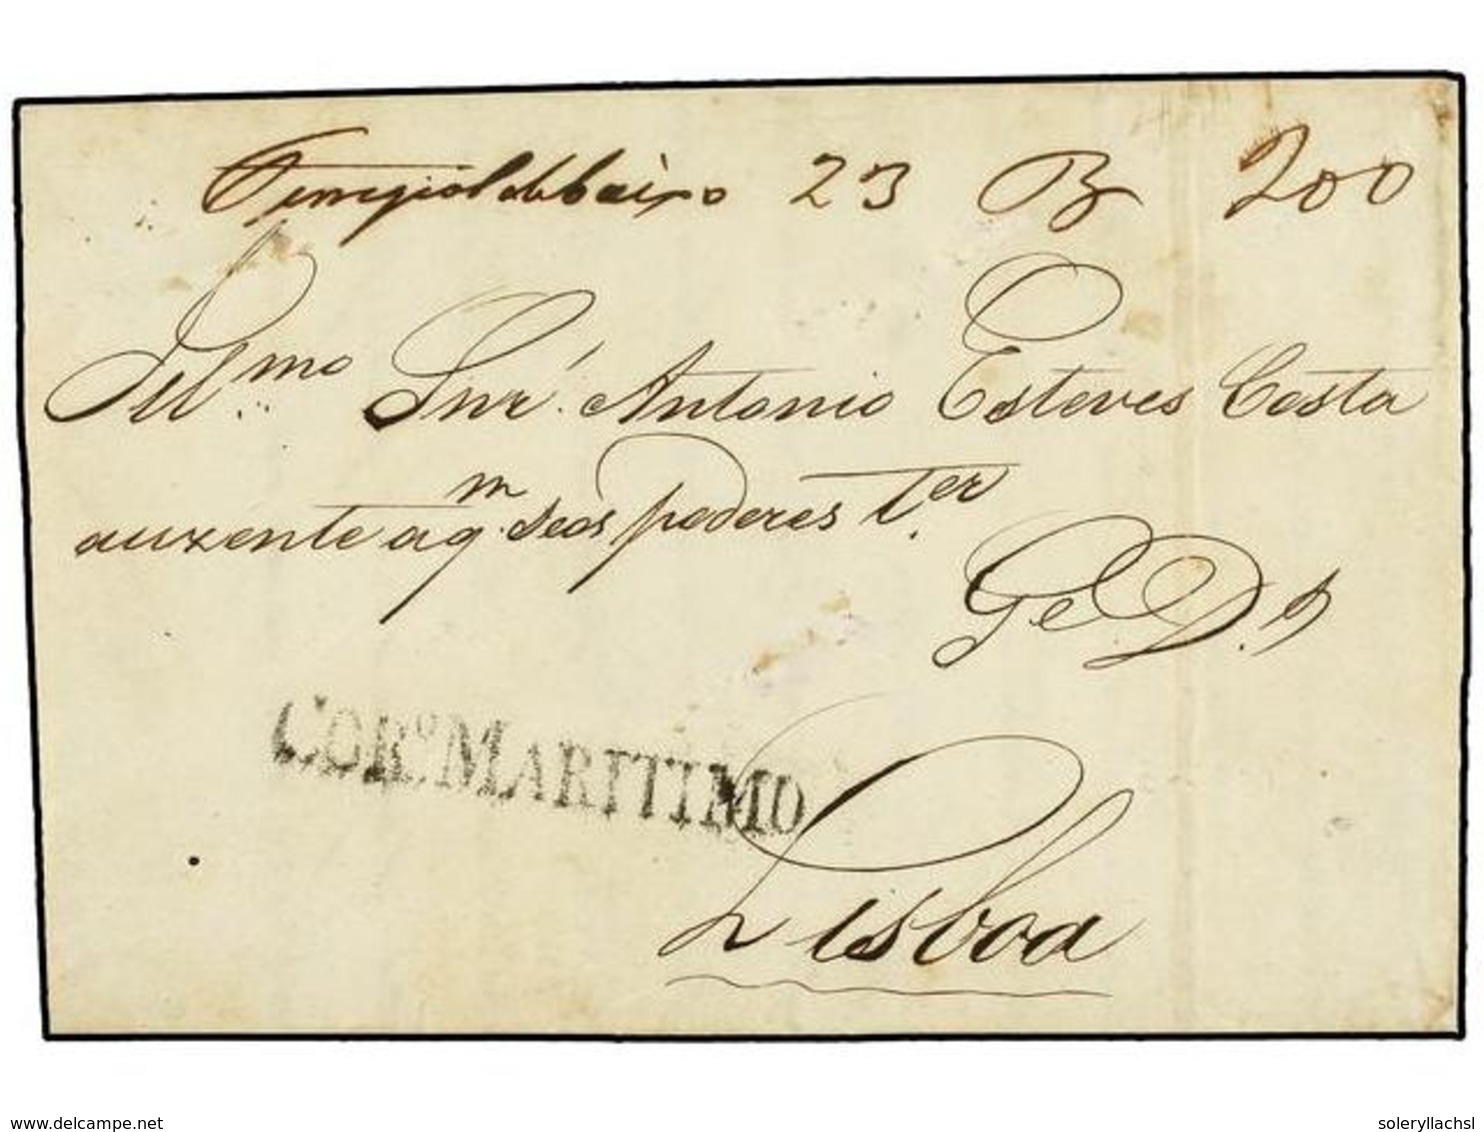 23 B 200
Illmo Snr. Antonio Esteves Costa
auzente a qm seos poderes ter
Ge. D. s
COR.o MARITIMO
Lisboa
www.delcampe.net
soleryllachsl